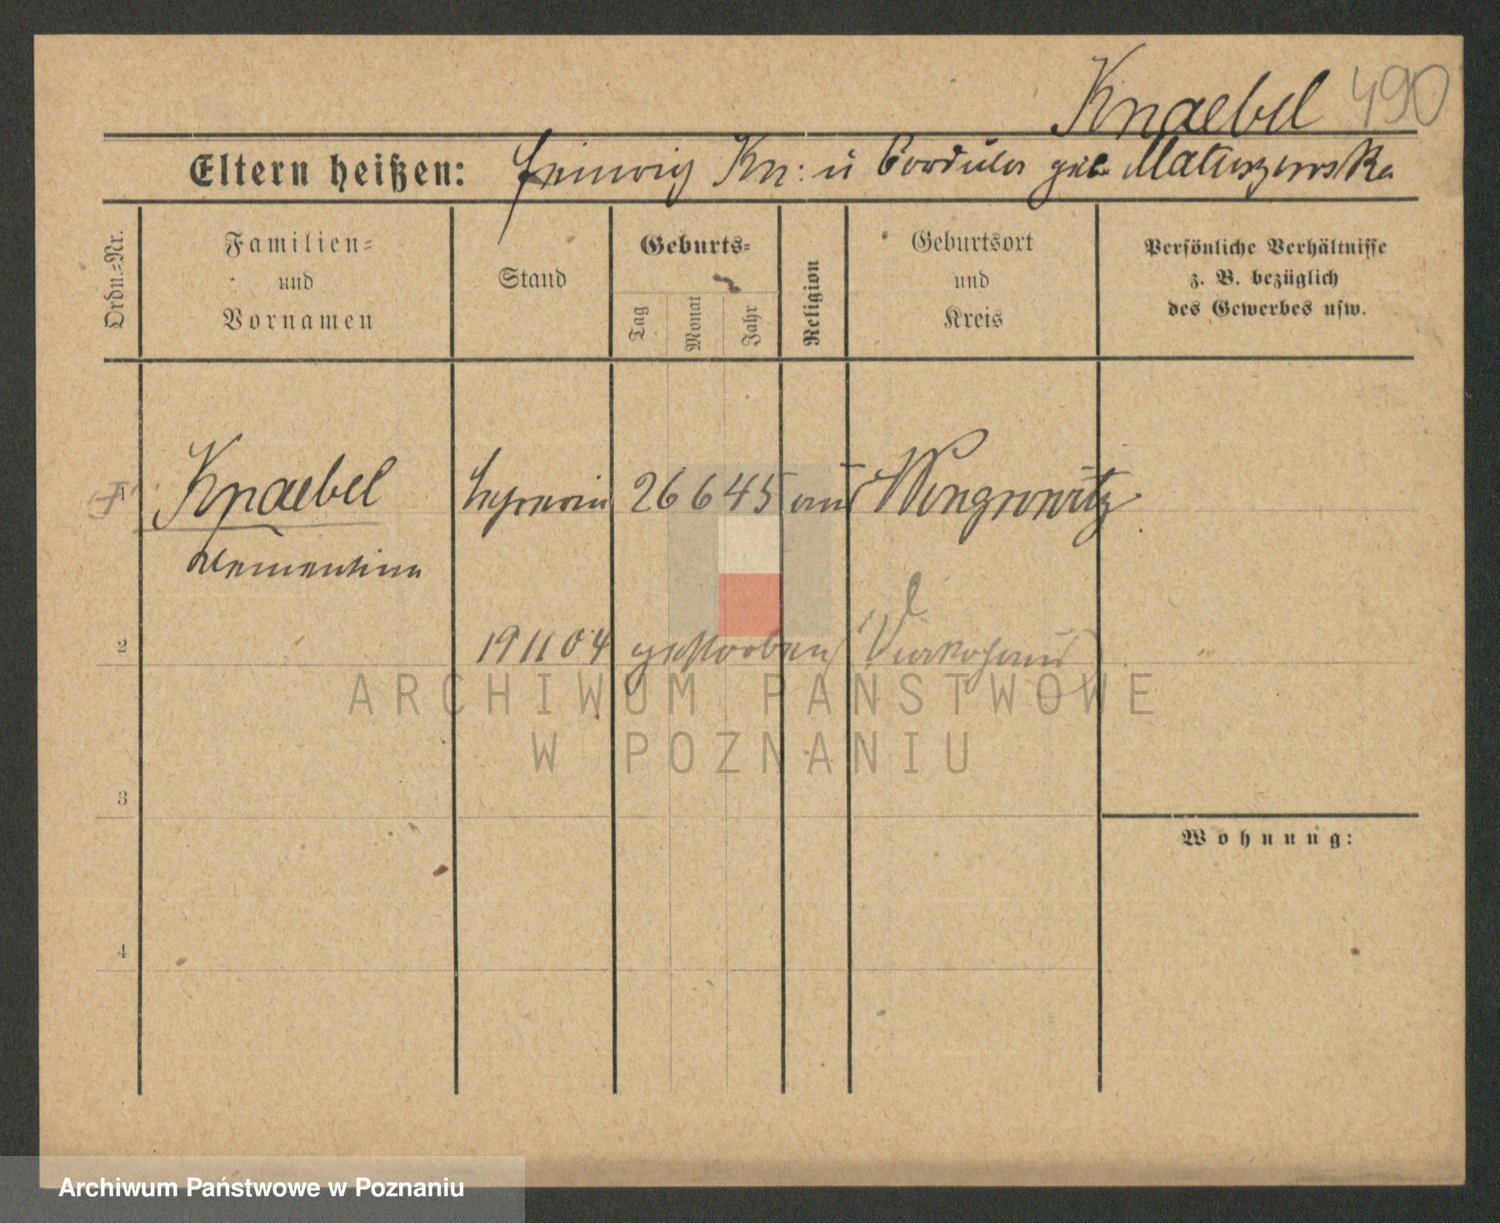 Knaebel 490
Eltern heißen: Heinrich Kn: u Cordula geb Matuszewska
Ordn.=Nr.
Familien=
und
Vornamen
Stand
Geburts=
Tag
Monat
Jahr
Religion
Geburtsort
und
Kreis
Persönliche Verhältnisse
z. B. bezüglich
des Gewerbes usw.
1 Knaebel Lehrerin 26 6 45 Wongrowitz
Clementine
2 19 11 04 gestorben
ARCHIWUM PAŃSTWOWE
W POZNANIU
3
Wohnung:
4
Archiwum Państwowe w Poznaniu